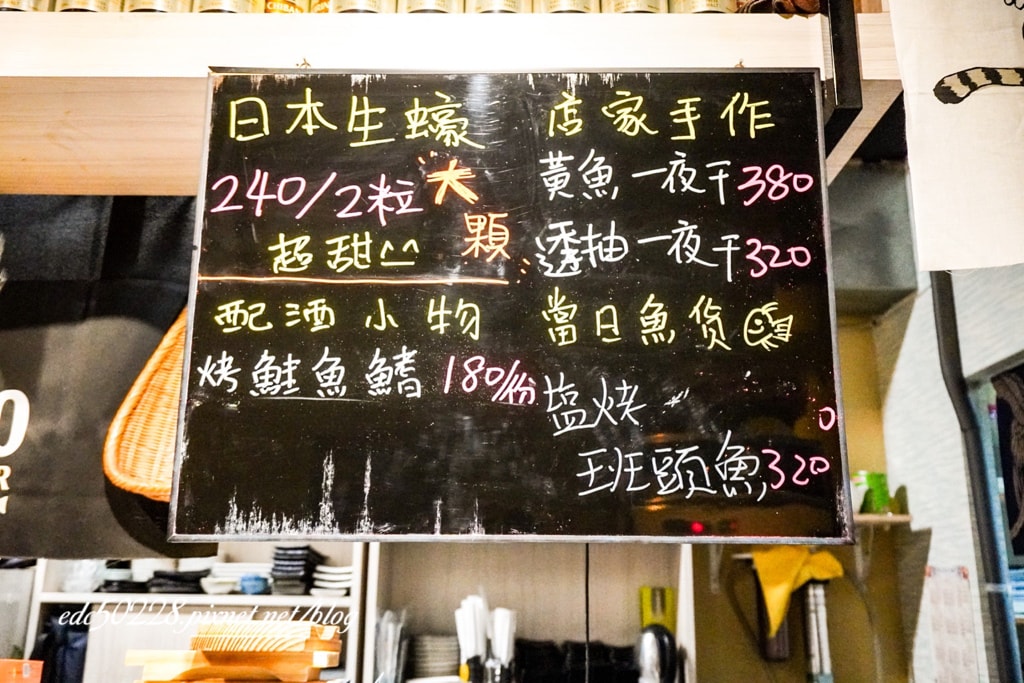 日本生蠔
240/2粒
大顆
超甜^^
配酒小物
烤鮭魚鰭 180/份
店家手作
黃魚一夜干380
透抽一夜干320
當日魚货
塩烤
0
班頭魚320
edc50228.pixnet.net/blog